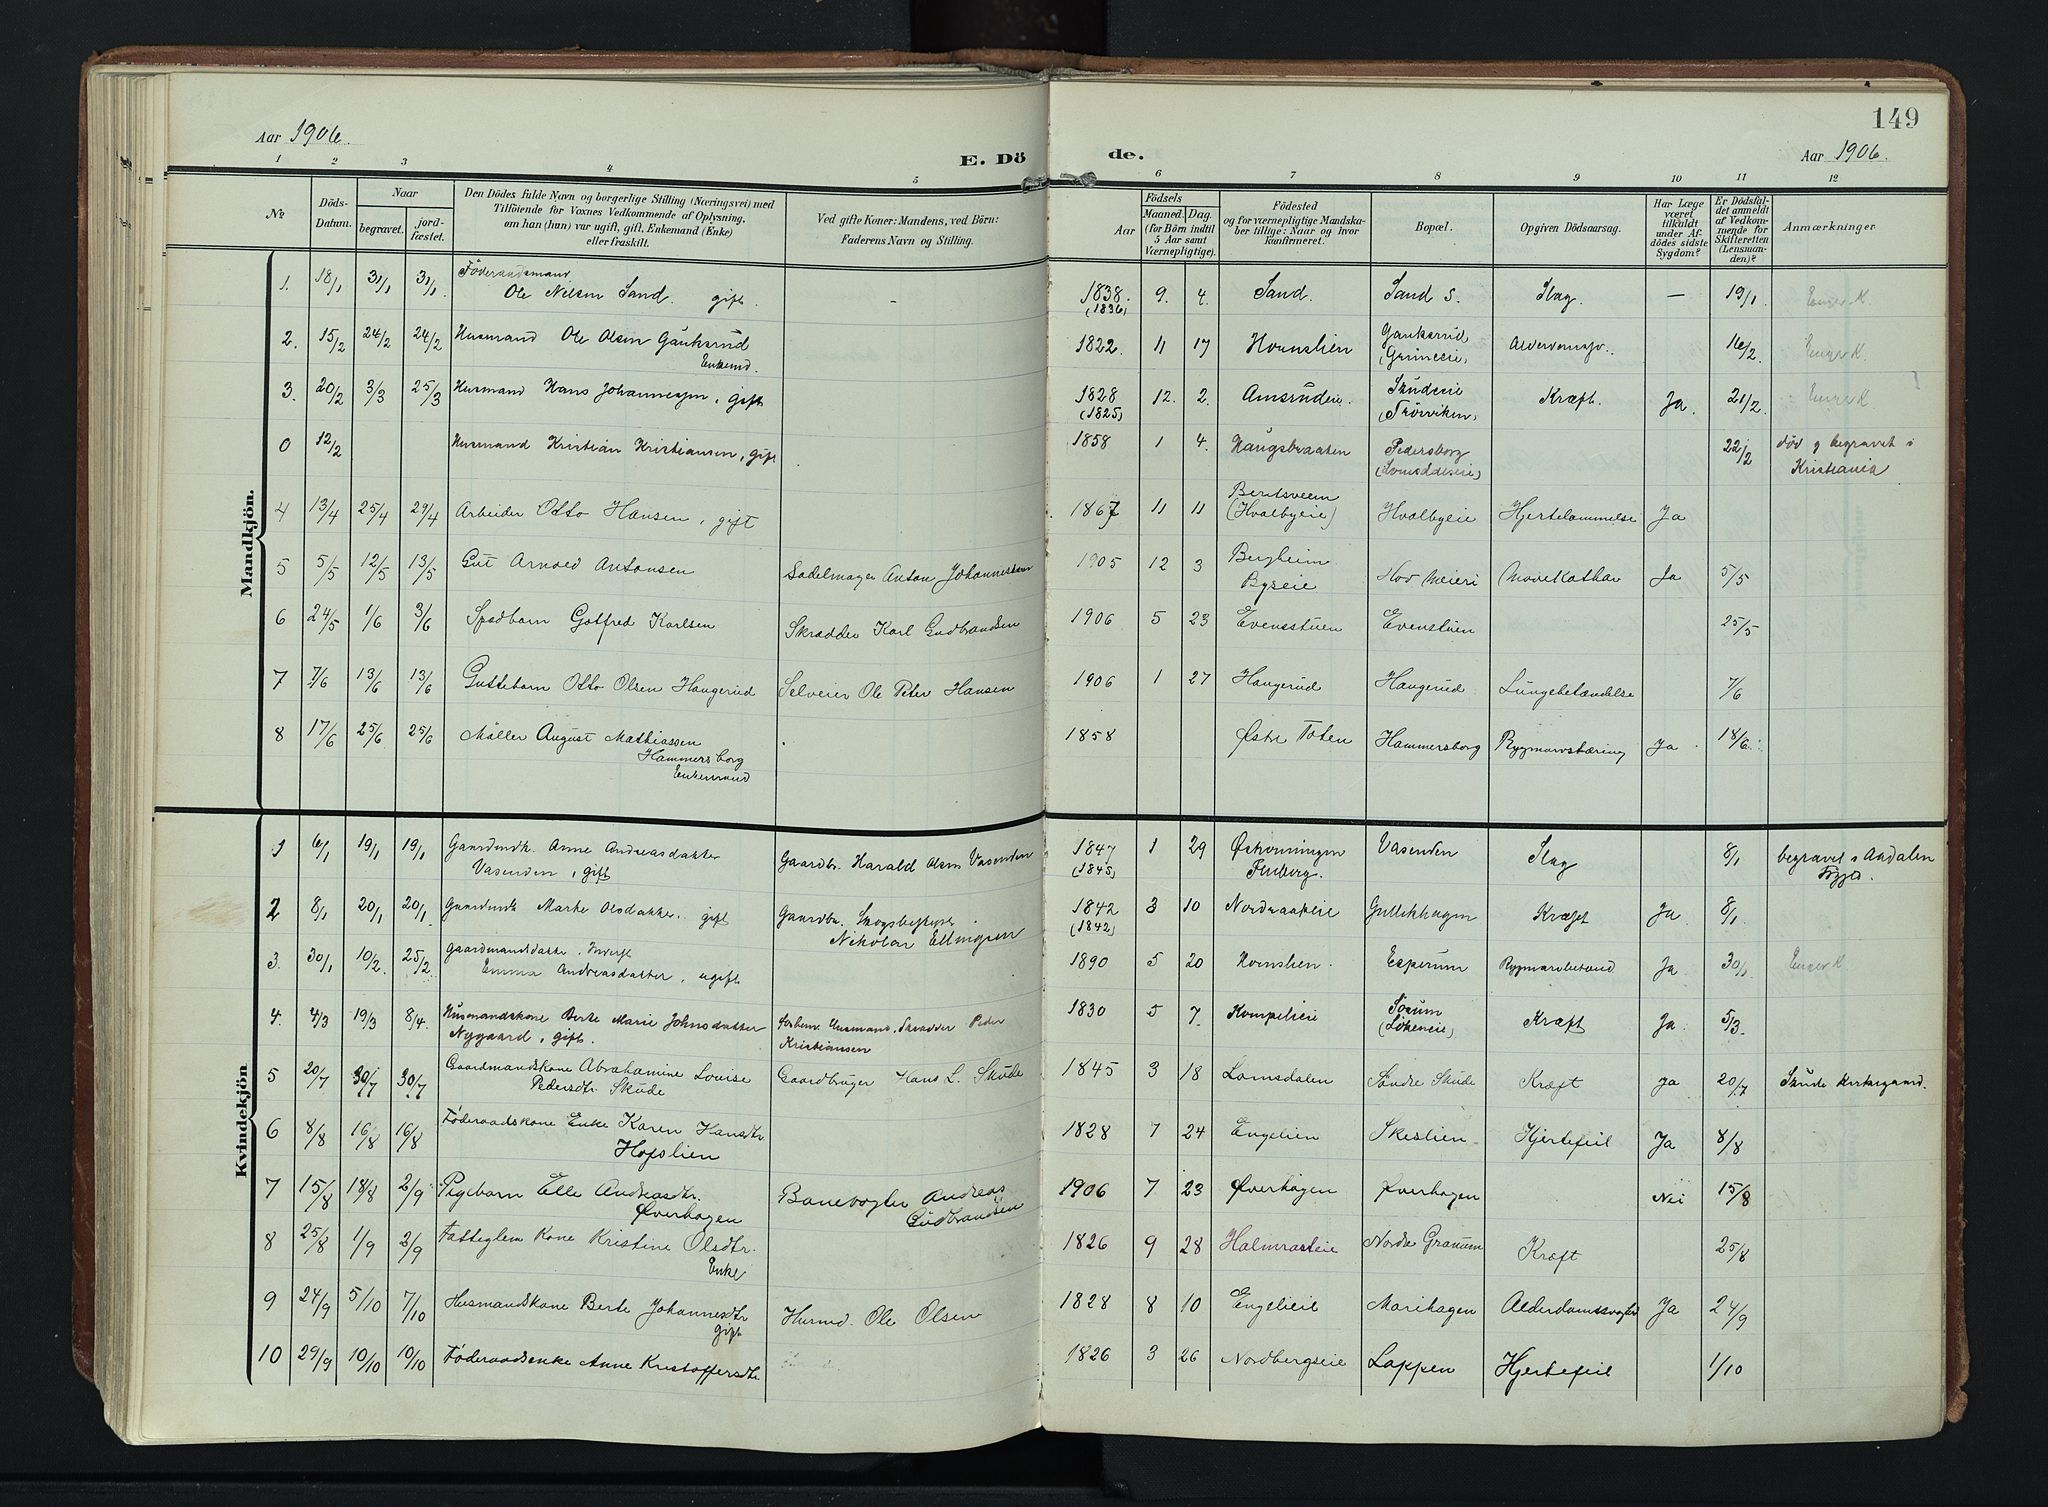 149
Aar 1906.
E. Dö
de.
Aar 1906.
1 2 3 4 5 6 7 8 9 10 11 12
№
Döds-
Datum.
Naar
begravet.
jord-
fæstet.
Den Dödes fulde Navn og borgerlige Stilling (Næringsvei) med
Tilföiende for Voxnes Vedkommende af Oplysning,
om han (hun) var ugift, gift, Enkemand (Enke)
eller fraskilt.
Ved gifte Koner: Mandens, ved Börn:
Faderens Navn og Stilling.
Födsels
Aar
Maaned. Dag.
(for Börn indtil
5 Aar samt
Værnepligtige).
Födested
og for værnepligtige Mandska-
ber tillige: Naar og hvor
konfirmeret.
Bopæl.
Opgiven Dödsaarsag.
Har Læge
været
tilkaldt
under Af-
dödes sidste
Sygdom?
Er Dödsfal-
det anmeldt
af Vedkom-
mende for
Skifteretten
(Lensman-
den)?
Anmærkninger
Mandkjön.
1. 18/1 31/1 31/1 Föderaadsmand
Ole Nilsen Sand. gift. - 1838. 9. 4. Sand. Sand S. Slag. — 19/1. Enger K.
(1836)
2. 15/2 24/2 24/2 Husmand Ole Olsen Gauksrud
Enkemd. 1822. 11 17 Hornslien Gauksrud 16/2. Enger K.
3. 20/2 3/3 25/3 Husmand Hans Johannessen, gift 1828 12. 2. Amsrudeie. Skudeie Kræft. Ja. 21/2. Enger K
(1825)
0 12/2 Husmand Kristian Kristiansen, gift 1858 1 4. Haugsbraaten Pedersborg 22/2 død og begravet i
Kristiania
4 13/4 25/4 29/4 Arbeider Otto Hansen, gift 1867 11 11 (Hvalbyeie) Hvalbyeie Hjertelammelse Ja
5 5/5 12/5 13/5 Gut Arnold Antonsen Sadelmager Anton Johannessen 1905 12 3 Bergheim
Byseie Hov Meieri Mavekathar Ja 5/5
6 24/5 1/6 3/6 Spædbarn Gotfred Karlsen Skrædder Karl Gudbrandsen 1906 5 23 Evensstuen Evenstuen 25/5
7 7/6 13/6 13/6 Guttebarn Otto Olsen Haugerud Selveier Ole Peter Hansen 1906 1 27 Haugerud Haugerud Lungebetændelse 7/6
8 17/6 25/6 25/6 Møller August Mathiassen
Hammersborg
Enkemand 1858 Østre Toten Hammersborg Rygmarvstæring Ja 18/6
Kvindekjön
1 6/1 19/1 19/1 Gaardmdk. Anne Andreasdatter
Vasenden, gift Gaardbr. Harald Olsen Vasenden 1847 1 29 Vasenden Slag 8/1 begravet i Aadalen
(1845)
2 8/1 20/1 20/1 Gaardmdk Marte Olsdatter. gift Gaardbr. Skogsbestyrer
Nikolai Ellingsen 1842 3 10 Nordraakeie Gullikhagen Kræft Ja 8/1
(1842)
3. 30/1 10/2. 25/2. Gaardmandsdatter
Emma Andreasdatter, ugift 1890 5 20 Hornslien. Esperum Ja. 30/1 Enger K.
4. 4/3 19/3 8/4. Husmandskone Berte Marie Johnsdatter
Nygaard, gift. Husmand, Skrædder Peder
Kristiansen 1830 5 7. Kompelieie Søium
(Løkeneie) Kræft Ja. 5/3.
5 20/7 30/7 30/7 Gaardmandskone Abrahamine Lovise
Pedersdtr. Skude Gaardbruger Hans L. Skude 1845 3 18 Lomsdalen Søndre Skude Kræft Ja 20/7 Skude Kirkegaard.
6 8/8 16/8 16/8 Föderaadskone Enke Karen Hansdtr.
Hofslien 1828 7 24 Engelien Skeslien Hjertefeil Ja 8/8
7 15/8 18/8 2/9 Pigebarn Elle Andreasdtr.
Øverhagen Banevogter Andreas
Gudbrandsen 1906 7 23 Øverhagen Øverhagen Nei 15/8
8 25/8 1/9 2/9 Fattiglem Kone Kristine Olsdtr.
Enke 1826 9 28 Halmrasteie Nordre Granum Kræft 25/8
9 24/9 5/10 7/10 Husmandskone Berte Johannesdtr
gift Husmd. Ole Olsen 1828 8 10 Engelieie Marihagen Alderdomssvaghed Ja 24/9
10 29/9 10/10 10/10 Föderaadsenke Anne Kristoffersdtr 1826 3 26 Nordbergseie Lappen Hjertefeil 1/10